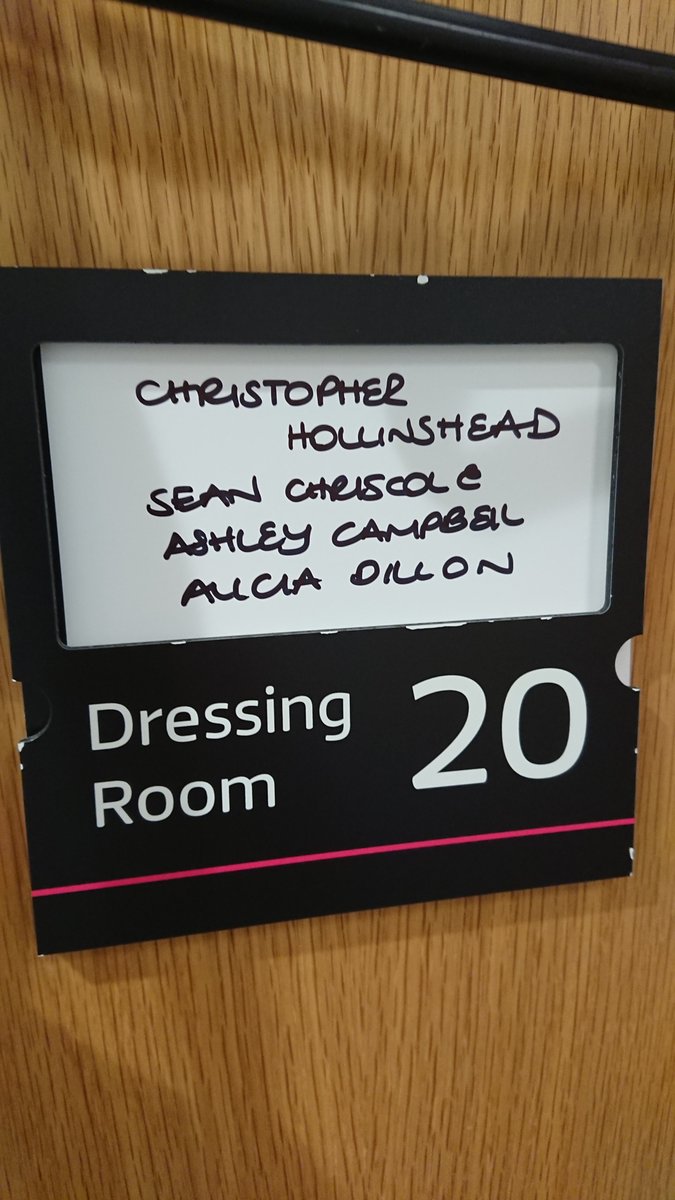 CHRISTOPHER
HOLLINSHEAD
SEAN CHRISCOLE
ASHLEY CAMPBELL
ALICIA DILLON
Dressing
Room
20